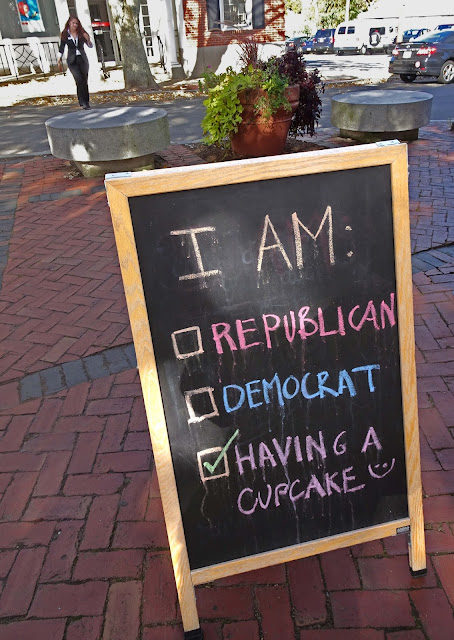 I AM:
REPUBLICAN
DEMOCRAT
HAVING A
CUPCAKE